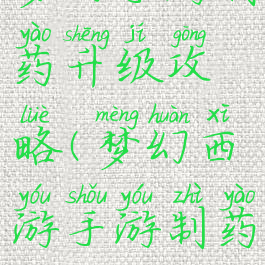 yào shēng jí gōng
药升级攻
lüè mèng huàn xī
略(梦幻西
yóu shǒu yóu zhì yào
游手游制药